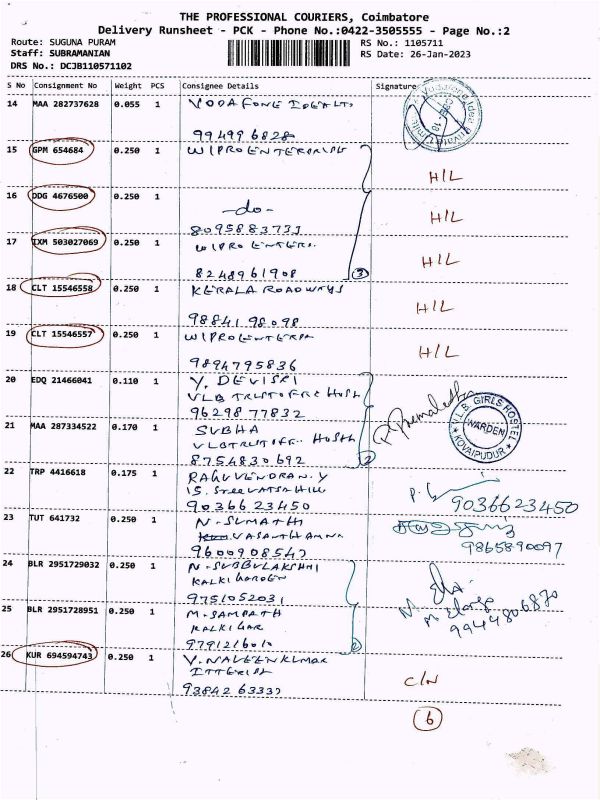 THE PROFESSIONAL COURIERS, Coimbatore
Delivery Runsheet - PCK - Phone No.:0422-3505555 - Page No.:2
Route: SUGUNA PURAM
RS No.: 1105711
Staff: SUBRAMANIAN
RS Date: 26-Jan-2023
DRS No.: DCJB110571102
S No Consignment No Weight PCS Consignee Details Signature
14 MAA 282737628 0.055 1 VODAFONE IDEA LTD
994996828
15 GPM 654684 0.250 1 WIPRO ENTERPRISE
H/L
16 DDG 4676500 0.250 1
-do- H/L
8095883733
17 IXM 503027069 0.250 1 WIPRO ENTERS.
H/L
8248961908 3
18 CLT 15546558 0.250 1 KERALA ROADWAYS
H/L
98841 98098
19 CLT 15546557 0.250 1 WIPRO ENTERPR
H/L
9894795836
20 EDQ 21466041 0.110 1 Y. DEVISRI
VLB TRUST OFFC HOSH
96298 77832
V.L.B. GIRLS HOSTEL
WARDEN
KOVAIPUDUR
21 MAA 287334522 0.170 1 SUBHA
VLB TRUST OFF. HOSH
8754830692
22 TRP 4416618 0.175 1 RAGUVENDRAN.Y
15. SREEVATSA HILL
9036623450 9036623450
23 TUT 641732 0.250 1 N. SUMATHI
VASANTHAMNA
9600908547 9865890097
24 BLR 2951729032 0.250 1 N. SUBBULAKSHMI
KALKI GARDEN
9751052031
25 BLR 2951728951 0.250 1 M. SAMPATH
KALKI GAR
9791216010 9944806870
26 KUR 694594743 0.250 1 V. NAVEENKUMAR
ITTERIA
C/N
93842 63333
6